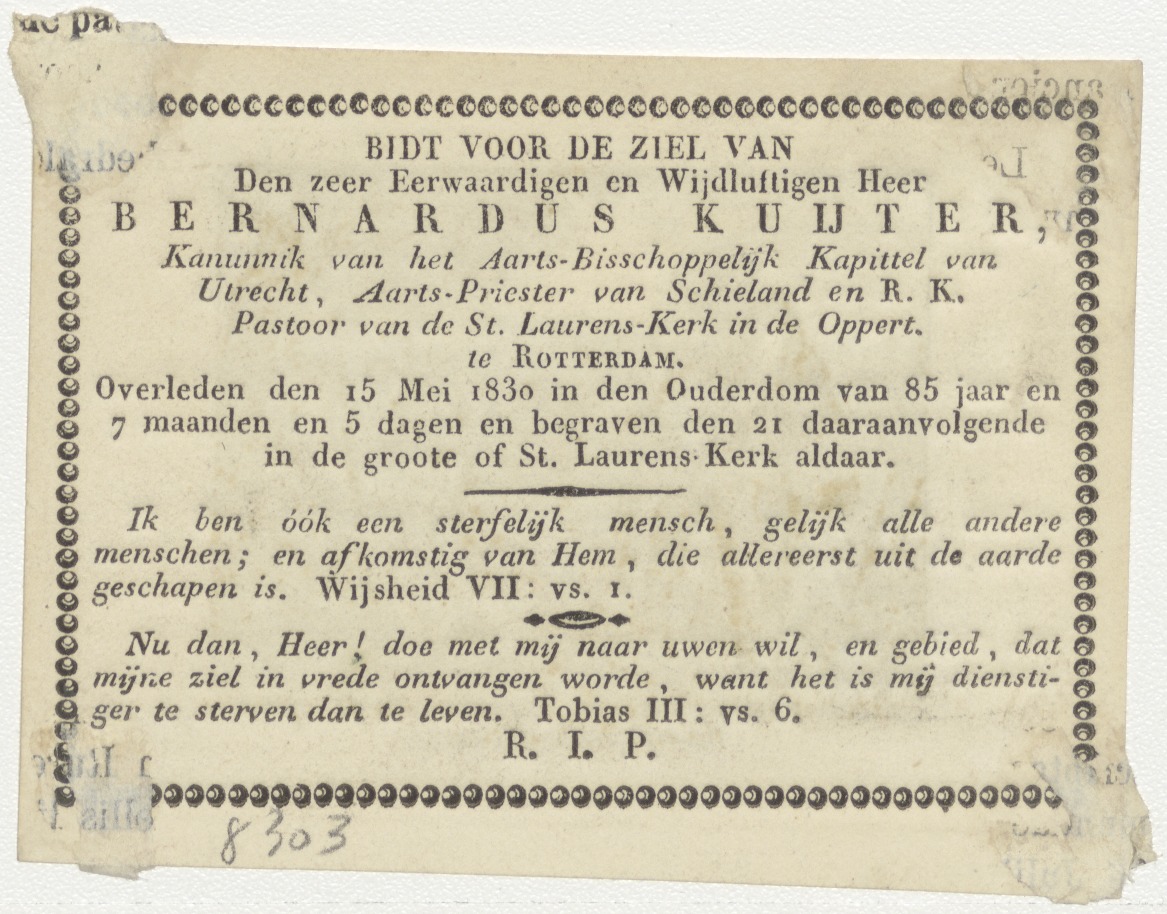 de pa
BIDT VOOR DE ZIEL VAN
Den zeer Eerwaardigen en Wijdluftigen Heer
BERNARDUS KUIJTER,
Kanunnik van het Aarts-Bisschoppelijk Kapittel van
Utrecht, Aarts-Priester van Schieland en R. K.
Pastoor van de St. Laurens-Kerk in de Oppert.
te ROTTERDAM.
Overleden den 15 Mei 1830 in den Ouderdom van 85 jaar en
7 maanden en 5 dagen en begraven den 21 daaraanvolgende
in de groote of St. Laurens-Kerk aldaar.
Ik ben óók een sterfelijk mensch, gelijk alle andere
menschen; en afkomstig van Hem, die allereerst uit de aarde
geschapen is. Wijsheid VII: vs. 1.
Nu dan, Heer! doe met mij naar uwen wil, en gebied, dat
mijne ziel in vrede ontvangen worde, want het is mij diensti-
ger te sterven dan te leven. Tobias III: vs. 6.
R. I. P.
8303